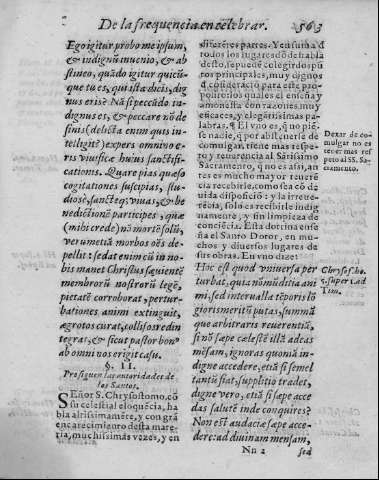 De la frequencia en celebrar. 563
Ego igitur probo me ipsum,
& indignũ inuenio, & ab
stineo, quãdo igitur quicũ-
que tu es, qui ista dicis, dig-
nus erisè Nã si peccãdo in-
dignus es, & peccare nõ de
sinis (delicta enim quis in-
telligit?) expers omnino e-
ris viuificæ huius sanctifi-
cationis. Quare pias quæso
cogitationes suscipias, stu-
diosè, sanctèq; viuas, & be
nedictiõne participes, quæ
(mihi crede) nõ mortẽ solũ,
verumetiã morbos oẽs de-
pellit: sedat enim cũ in no-
bis manet Christus sæuientẽ
membrorũ nostrorũ legẽ,
pietatẽ corroborat, pertur-
bationes animi extinguit,
ægrotos curat, collisos redin
tegrat, & sicut pastor bonꝰ
ab omni nos erigit casu.
§. II.
Prosiguen las autoridades de
los Santos.
SEñor S. Chrysostomo, cõ
su celestial eloquẽcia, ha
bla altissimamẽte, y con grã
encarecimiento desta mate-
ria, muchissimas vezes, y en
diferẽtes partes. Y en suma d̃
todos los lugares dõde habla
desto, se puedẽ colegir dos pũ
tos principales, muy dignos
d̃ cõsideraciõ para este pro-
posito, los quales el enseña y
amonesta con eficacissimas
razones, y elegantissimas pa-
labras. ¶ El vno es, q̃ no piẽ-
se nadie, q̃ por abstenerse de
comulgar, tiene mas respe-
cto y reuerencia al Sãtissimo
Sacramento, q̃ no es assi, an
tes es mucho mayor reuerẽ
cia recebirle, como sea cõ de
uida disposiciõ: y la irreue-
rencia, solo es recibirle indig-
namente, y sin limpieza de
conciẽcia. Esta doctrina ense
ña el Santo Doctor, en mu-
chos y diuersos lugares de
sus obras. En vno dize:
Hoc est quod vniuersa per
turbat, quia nõ mũditia ani
mi, sed interualla tẽporis lõ
gioris meritũ putas, summã
que arbitraris reuerentiã,
si nõ sæpe cælestẽ illã adeas
mẽsam, ignoras quoniã in-
digne accedere, etiã si semel
tantũ fiat, supplitio tradet,
digne vero, etiã si sæpe acce
das salutẽ inde conquires?
Non est audaciæ sæpe acce-
dere: ad diuinam mensam,
Dexar de co-
mulgar no es
tener mas res-
peto al SS. Sa-
cramento.
Chrysost. ho.
5. super 1. ad
Tim.
Nn 2 sed